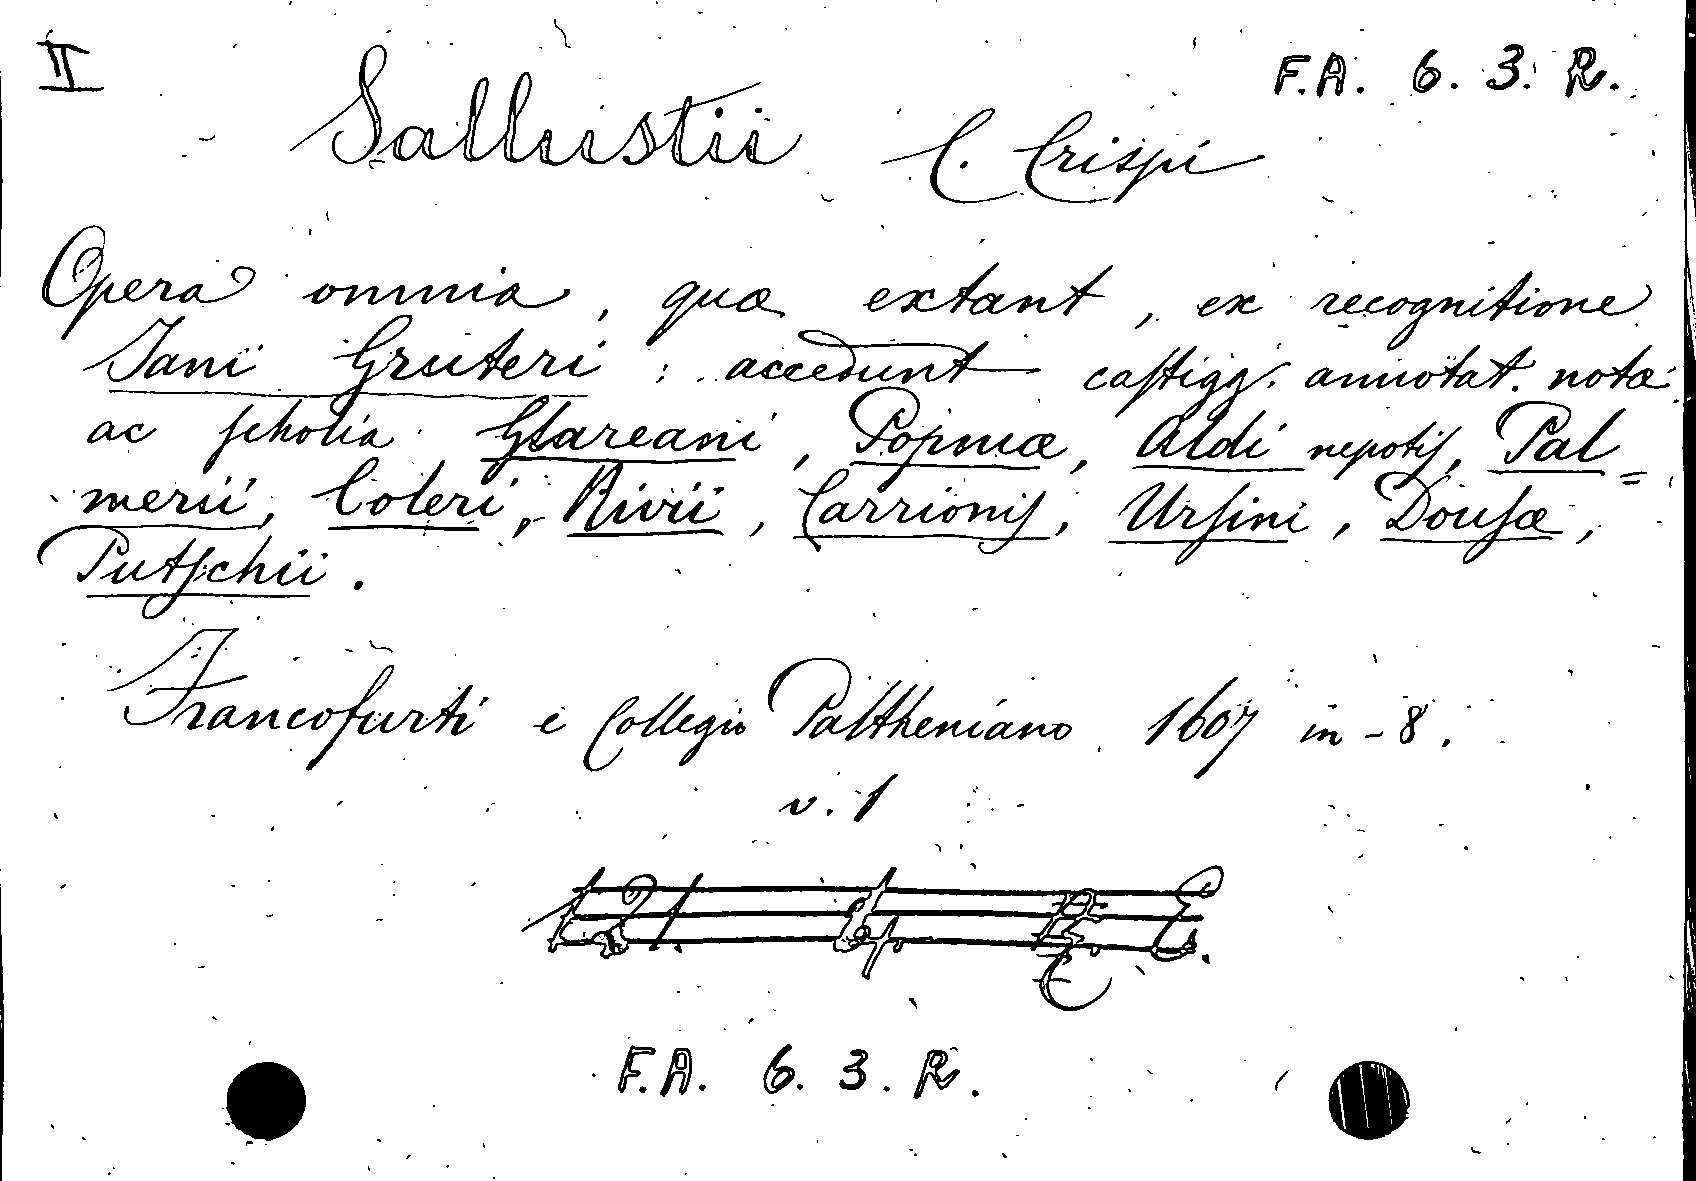 II F.A. 6. 3. R.
Sallustii C. Crispi
Opera omnia, quæ extant, ex recognitione
Jani Gruteri : accedunt castigg. annotat. notæ
ac scholia Glareani, Popmæ, Aldi nepotis, Pal=
merii, Coleri, Rivii, Carrionis, Ursini, Dousæ,
Putschii.
Francofurti e Collegio Paltheniano 1607 in-8.
v. 1
F.A. 6. 3. R.